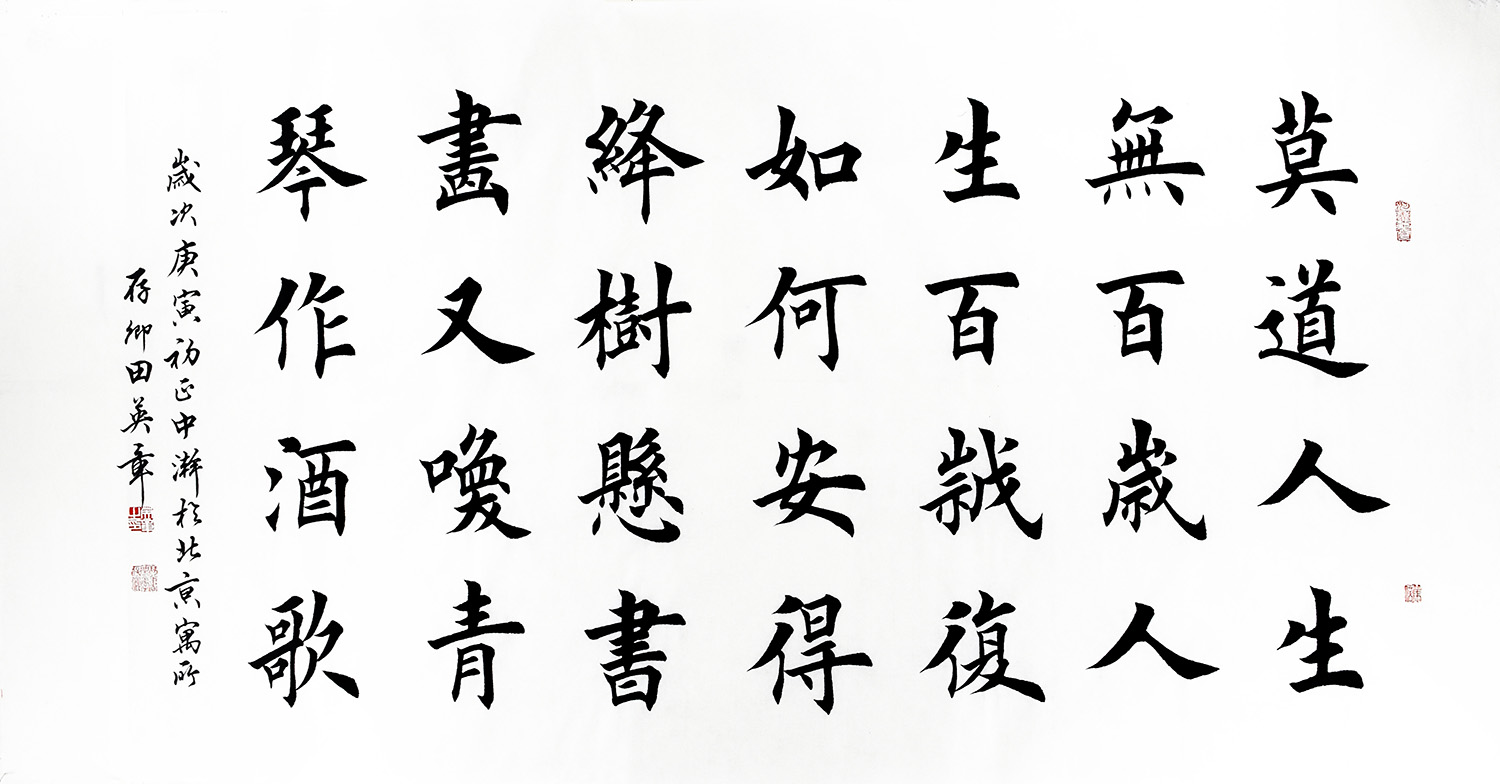 莫道人生
無百歲人
生百歲復
如何安得
絳樹懸書
畫又喚青
琴作酒歌
歲次庚寅初正中澣於北京寓所
存卿田英章